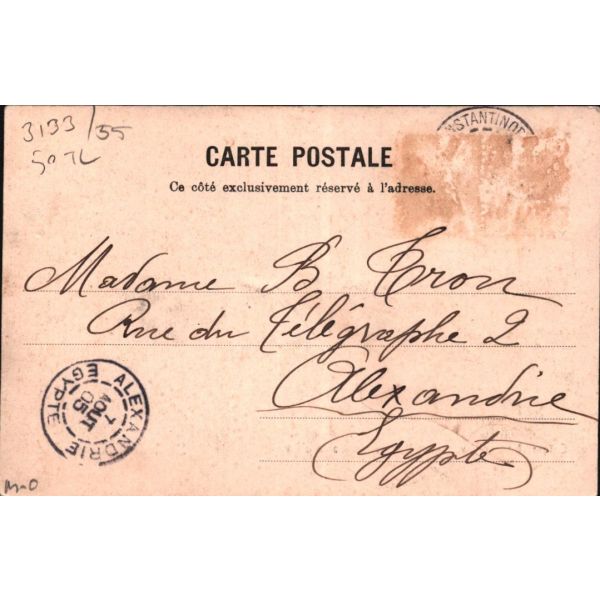 3133/55
50 TL
NSTANTINOP
CARTE POSTALE
Ce côté exclusivement réservé à l'adresse.
Madame B Tron
Rue du Télégraphe 2
Alexandrie
Egypte
ALEXANDRIE
7
AOUT
05
EGYPTE
M-O